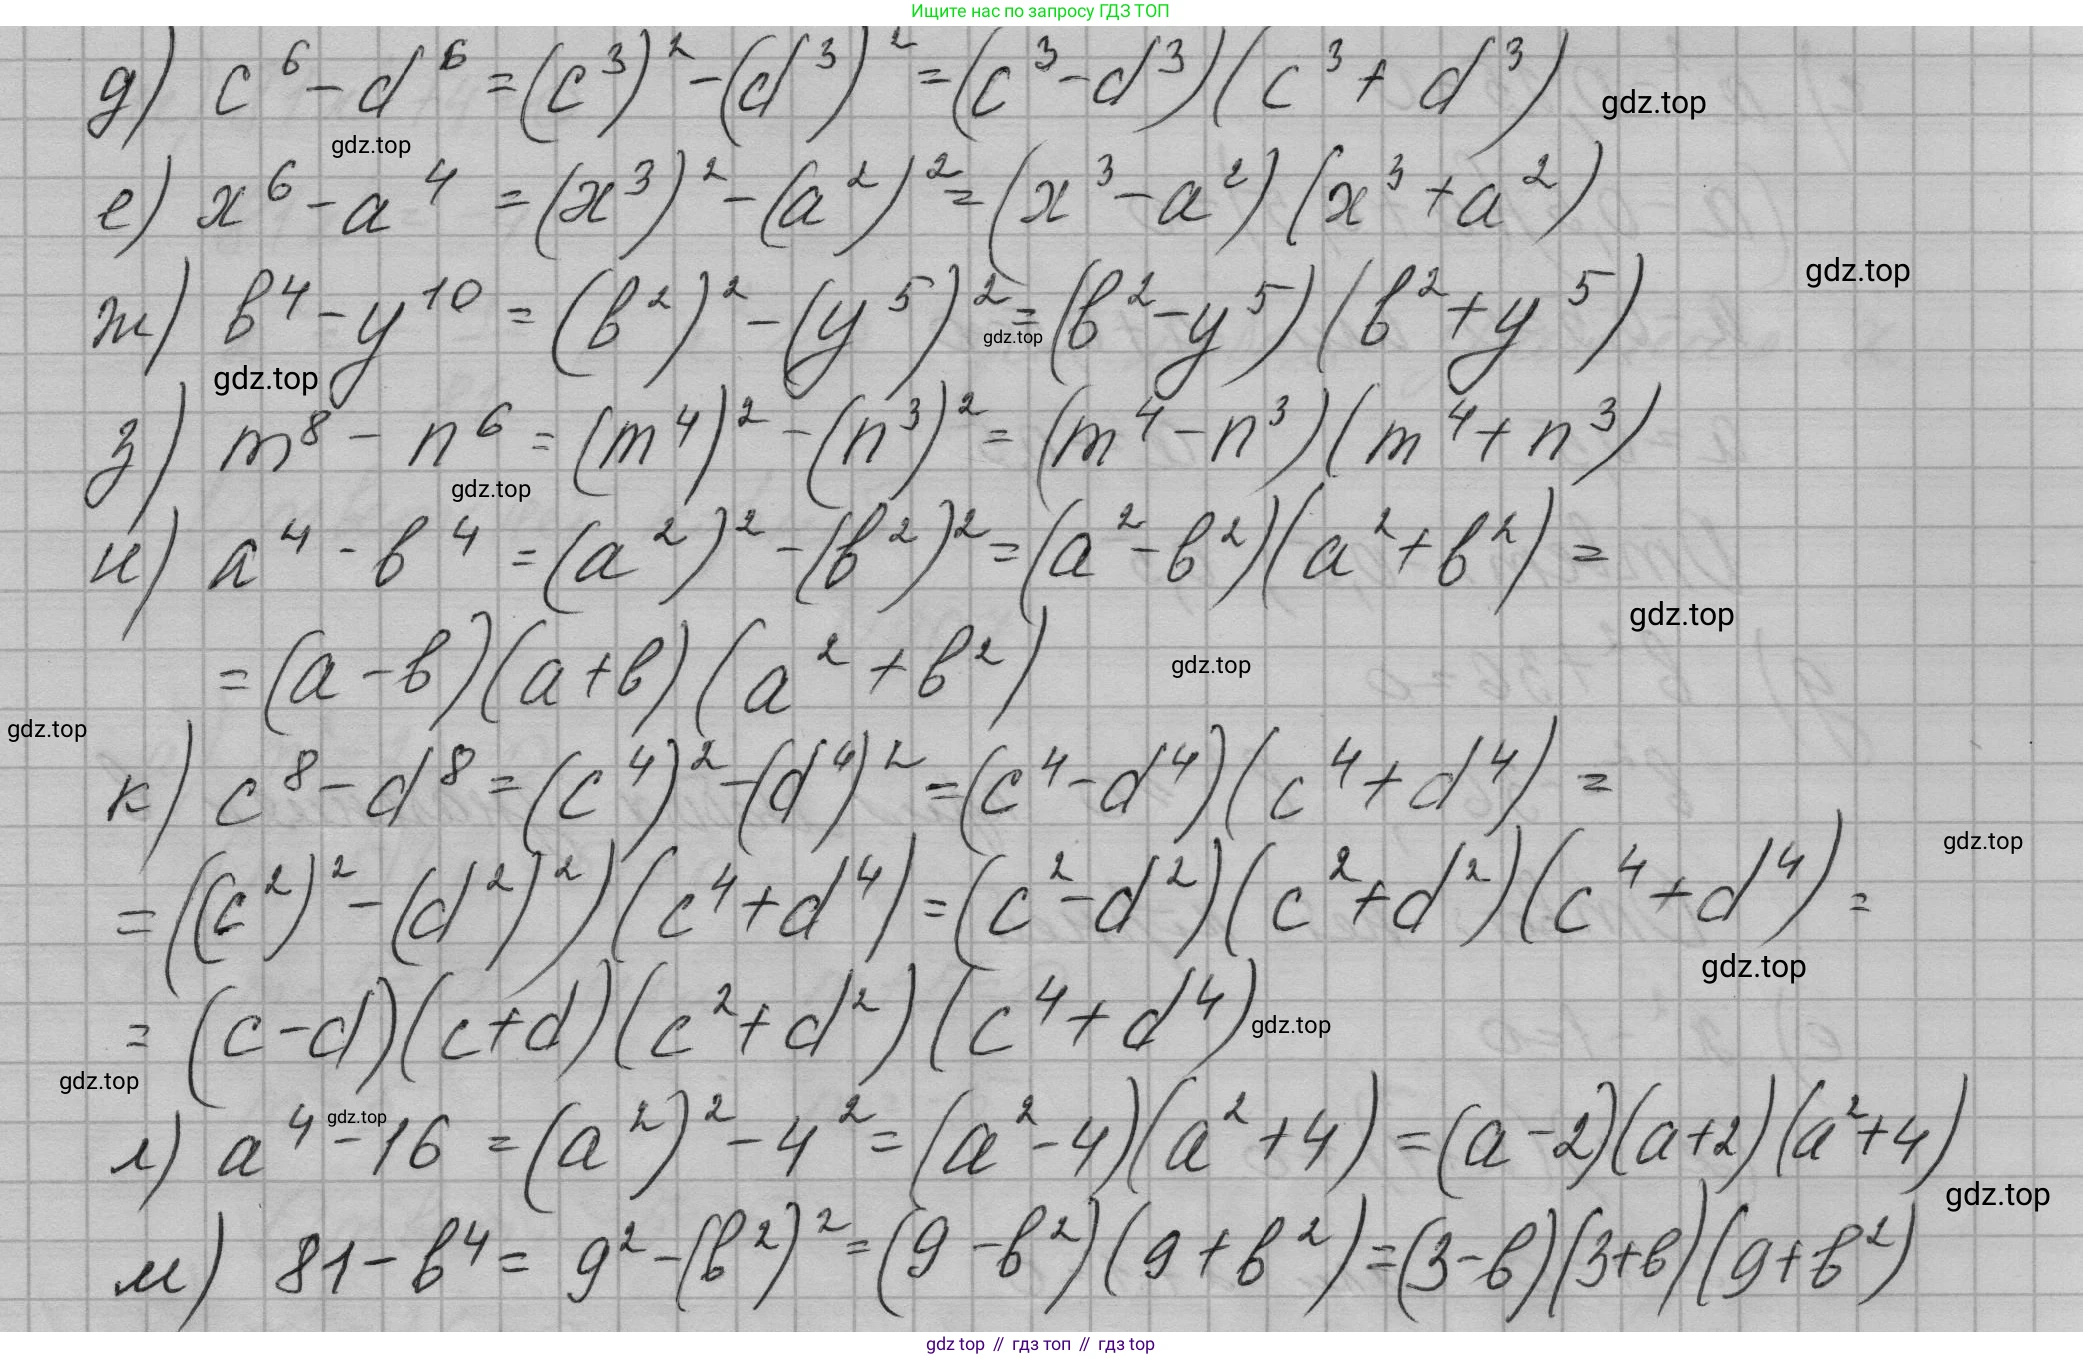 Ищите нас по запросу ГДЗ ТОП
д) c⁶ - d⁶ = (c³)² - (d³)² = (c³ - d³)(c³ + d³)
gdz.top
gdz.top
е) x⁶ - a⁴ = (x³)² - (a²)² = (x³ - a²)(x³ + a²)
gdz.top
ж) b⁴ - y¹⁰ = (b²)² - (y⁵)² = (b² - y⁵)(b² + y⁵)
gdz.top
gdz.top
з) m⁸ - n⁶ = (m⁴)² - (n³)² = (m⁴ - n³)(m⁴ + n³)
gdz.top
и) a⁴ - b⁴ = (a²)² - (b²)² = (a² - b²)(a² + b²) =
gdz.top
= (a - b)(a + b)(a² + b²)
gdz.top
gdz.top
к) c⁸ - d⁸ = (c⁴)² - (d⁴)² = (c⁴ - d⁴)(c⁴ + d⁴) =
gdz.top
= ((c²)² - (d²)²)(c⁴ + d⁴) = (c² - d²)(c² + d²)(c⁴ + d⁴) =
gdz.top
= (c - d)(c + d)(c² + d²)(c⁴ + d⁴)
gdz.top
gdz.top
gdz.top
л) a⁴ - 16 = (a²)² - 4² = (a² - 4)(a² + 4) = (a - 2)(a + 2)(a² + 4)
gdz.top
м) 81 - b⁴ = 9² - (b²)² = (9 - b²)(9 + b²) = (3 - b)(3 + b)(9 + b²)
gdz top // гдз топ // гдз top